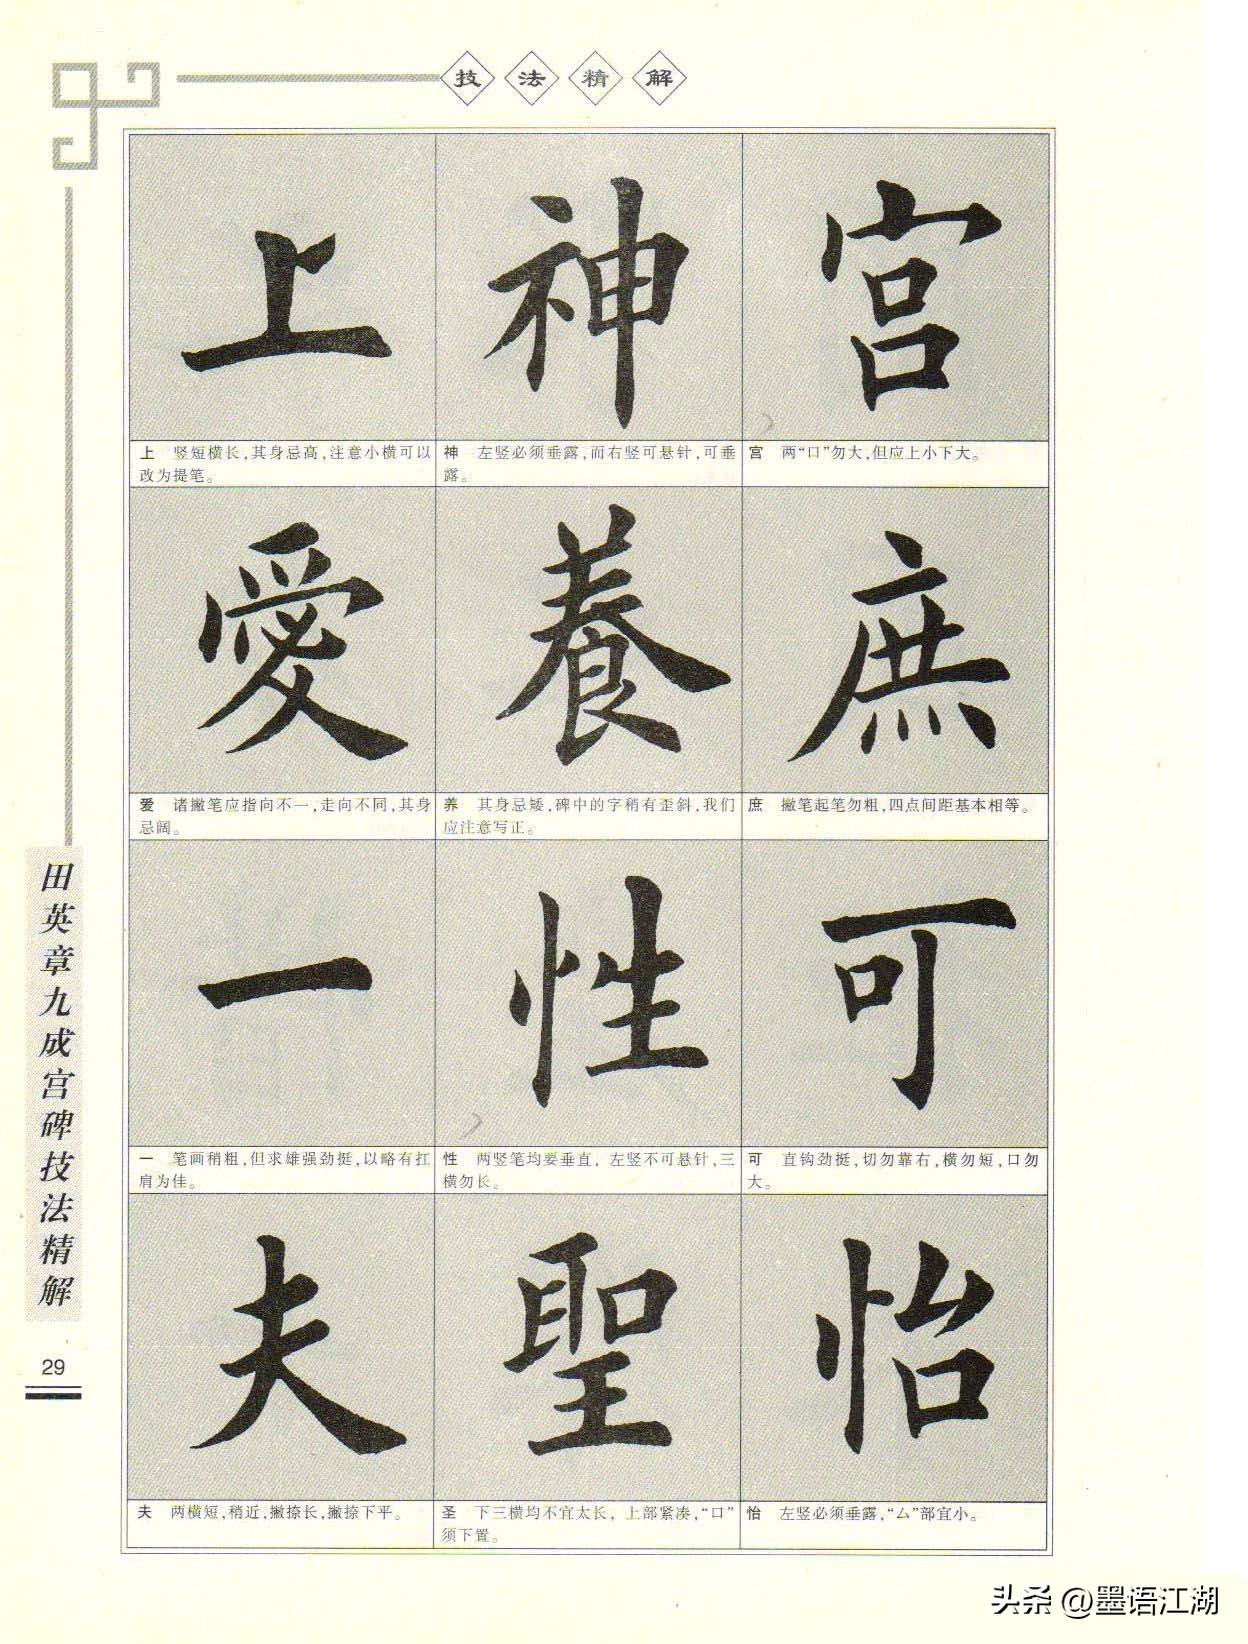 技法精解
上 神 宫
上 竖短横长,其身忌高,注意小横可以
改为提笔。
神 左竖必须垂露,而右竖可悬针,可垂
露。
宫 两“口”勿大,但应上小下大。
愛 養 庶
爱 诸撇笔应指向不一,走向不同,其身
忌阔。
养 其身忌矮,碑中的字稍有歪斜,我们
应注意写正。
庶 撇笔起笔勿粗,四点间距基本相等。
一 性 可
一 笔画稍粗,但求雄强劲挺,以略有扛
肩为佳。
性 两竖笔均要垂直,左竖不可悬针,三
横勿长。
可 直钩劲挺,切勿靠右,横勿短,口勿
大。
夫 聖 怡
夫 两横短,稍近,撇捺长,撇捺下平。
圣 下三横均不宜太长,上部紧凑,“口”
须下置。
怡 左竖必须垂露,“厶”部宜小。
田英章九成宫碑技法精解
29
头条 @墨语江湖